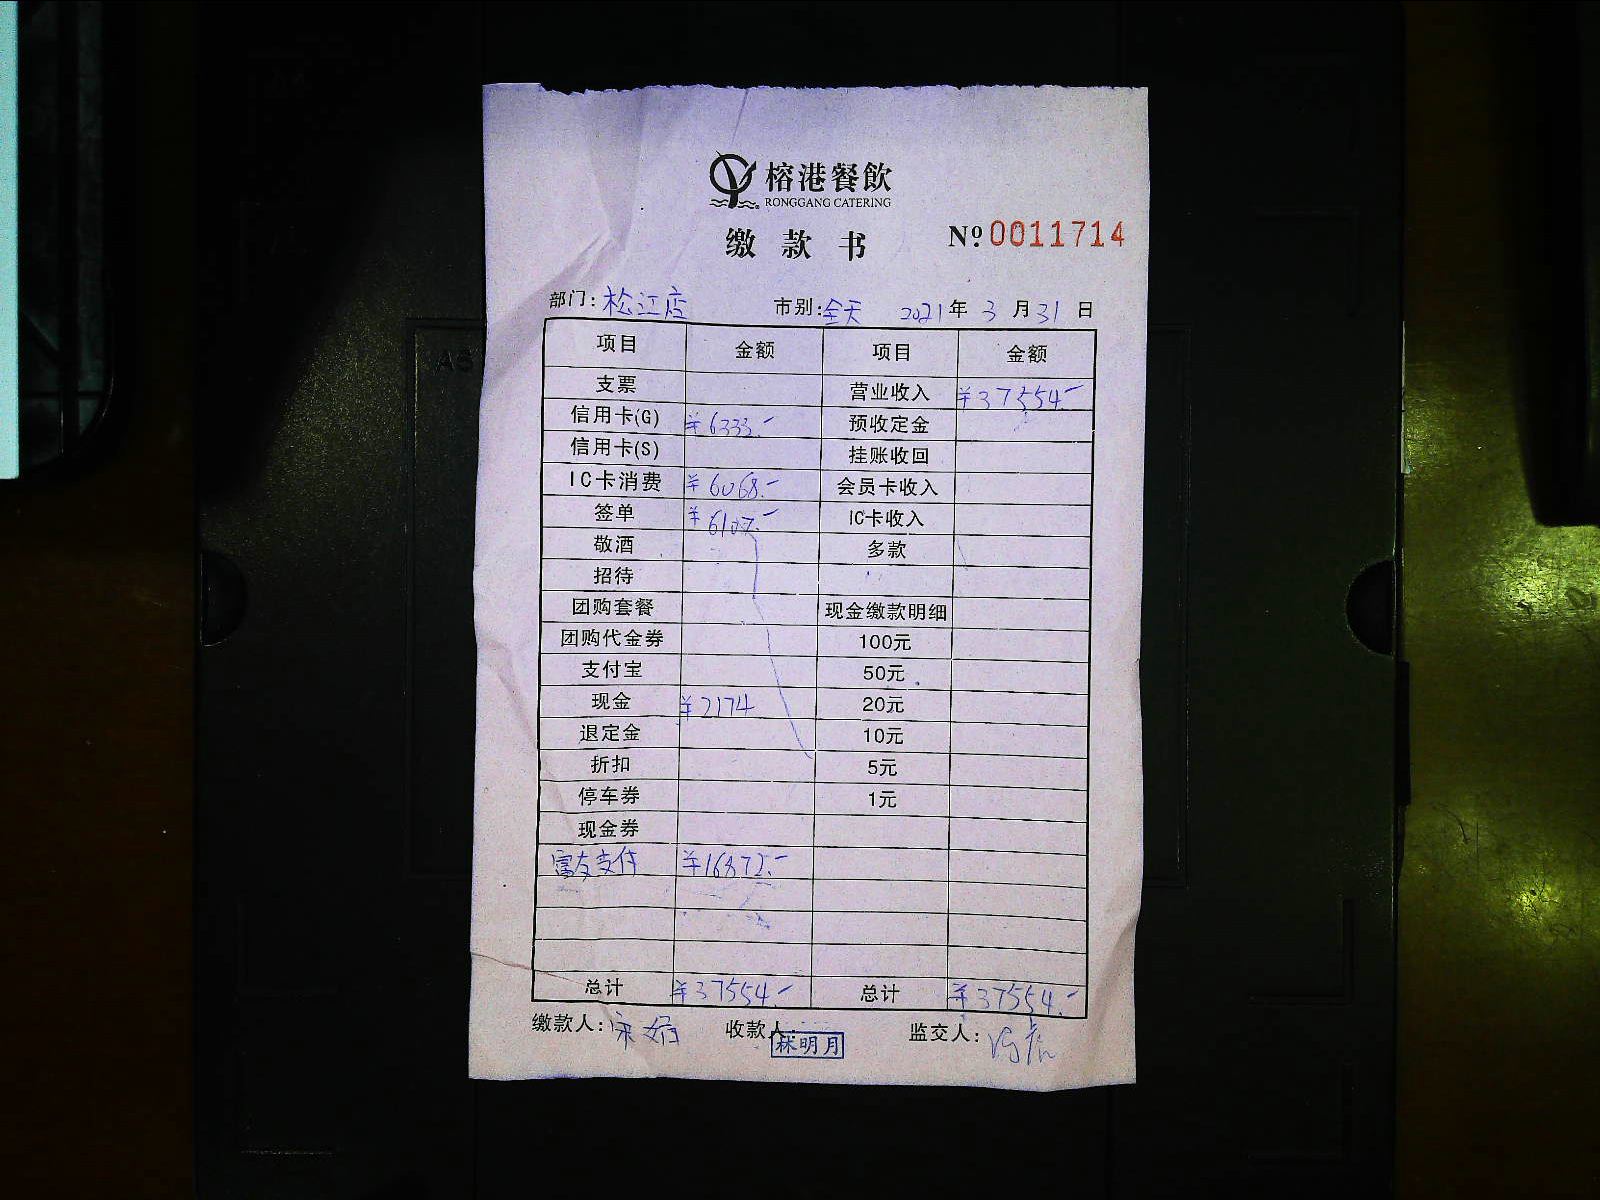 榕港餐飲
RONGGANG CATERING
缴款书 Nº 0011714
部门: 松江店 市别: 全天 2021年3月31日
项目 金额 项目 金额
支票 营业收入 ¥37554.-
信用卡(G) ¥6333.- 预收定金
信用卡(S) 挂账收回
IC卡消费 ¥6068.- 会员卡收入
签单 ¥6107.- IC卡收入
敬酒 多款
招待
团购套餐 现金缴款明细
团购代金券 100元
支付宝 50元
现金 ¥2174 20元
退定金 10元
折扣 5元
停车券 1元
现金券
富友支付 ¥16872.-
总计 ¥37554.- 总计 ¥37554.-
缴款人: 宋娟 收款人: 林明月 监交人: